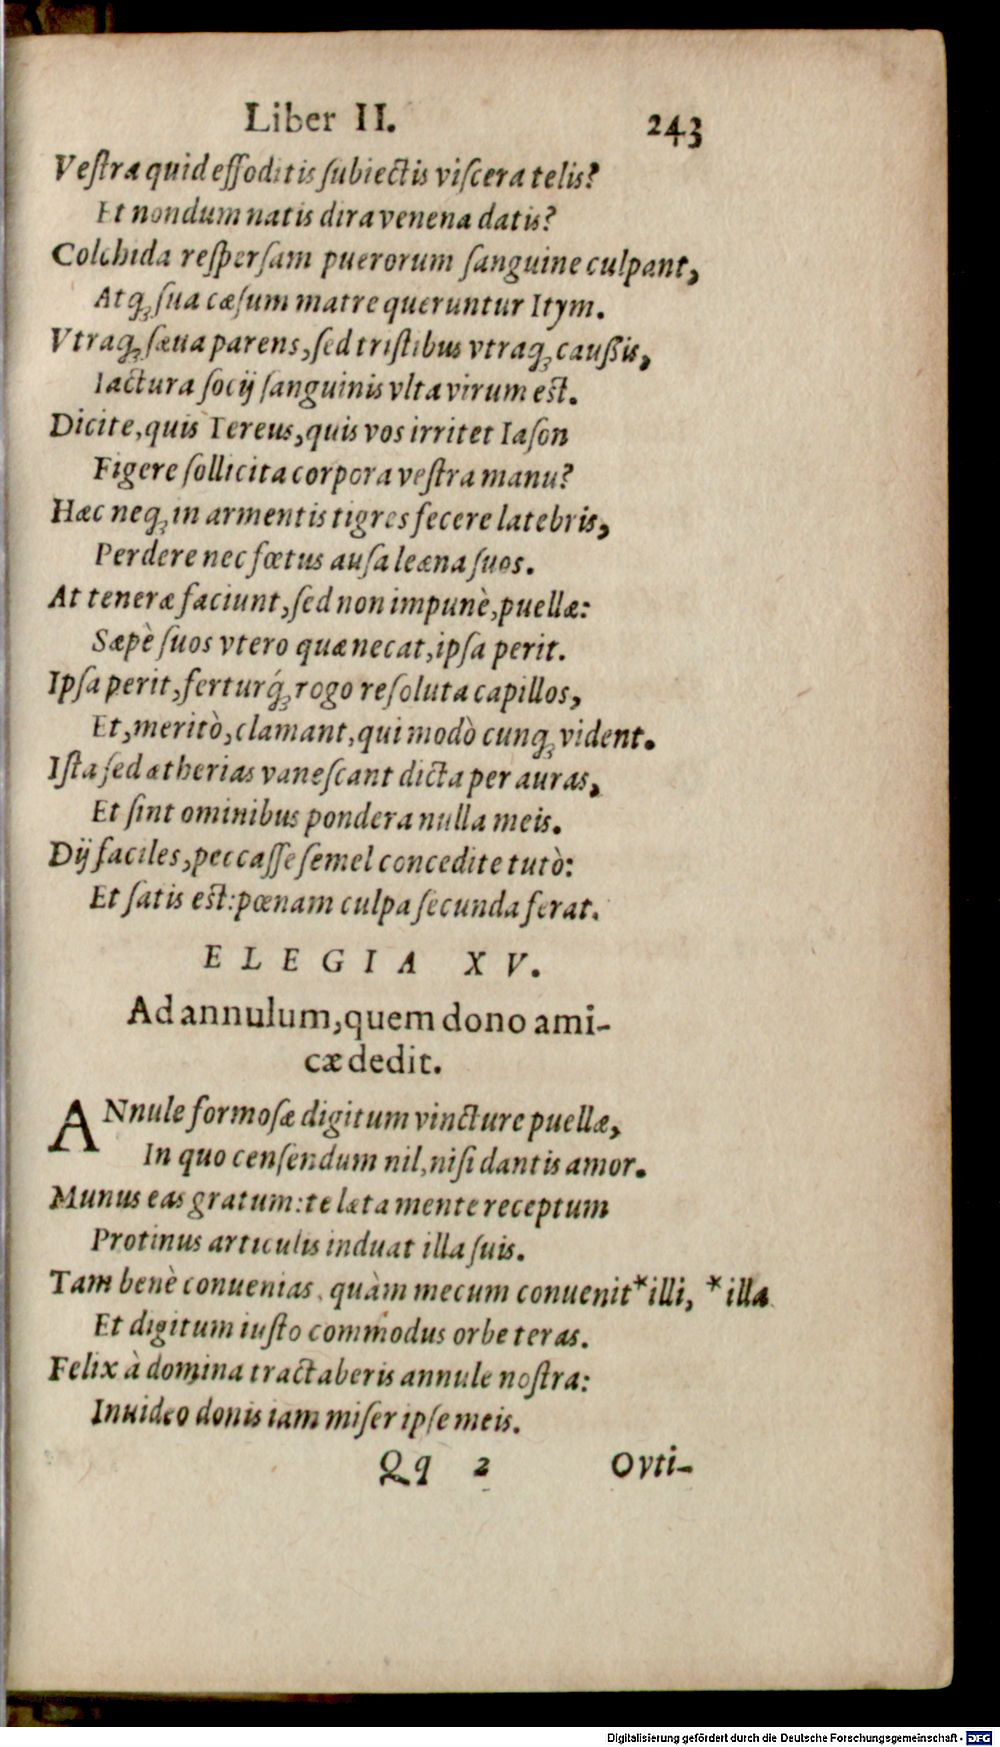 Liber II. 243
Vestra quid effoditis subiectis viscera telis?
Et nondum natis dira venena datis?
Colchida respersam puerorum sanguine culpant,
Atq; sua cæsum matre queruntur Itym.
Vtraq; sæua parens, sed tristibus vtraq; caussis,
Iactura socij sanguinis vlta virum est.
Dicite, quis Tereus, quis vos irritet Iason
Figere sollicita corpora vestra manu?
Hæc neq; in armentis tigres fecere latebris,
Perdere nec fœtus ausa leæna suos.
At teneræ faciunt, sed non impunè, puellæ:
Sæpè suos vtero quæ necat, ipsa perit.
Ipsa perit, ferturq́; rogo resoluta capillos,
Et, meritò, clamant, qui modò cunq; vident.
Ista sed ætherias vanescant dicta per auras,
Et sint ominibus pondera nulla meis.
Dij faciles, peccasse semel concedite tutò:
Et satis est: pœnam culpa secunda ferat.
ELEGIA XV.
Ad annulum, quem dono ami-
cæ dedit.
ANnule formosæ digitum vincture puellæ,
In quo censendum nil, nisi dantis amor.
Munus eas gratum: te læta mente receptum
Protinus articulis induat illa suis.
Tam benè conuenias, quàm mecum conuenit *illi, *illa
Et digitum iusto commodus orbe teras.
Felix à domina tractaberis annule nostra:
Inuideo donis iam miser ipse meis.
Qq 2 Ovti-
Digitalisierung gefördert durch die Deutsche Forschungsgemeinschaft - DFG